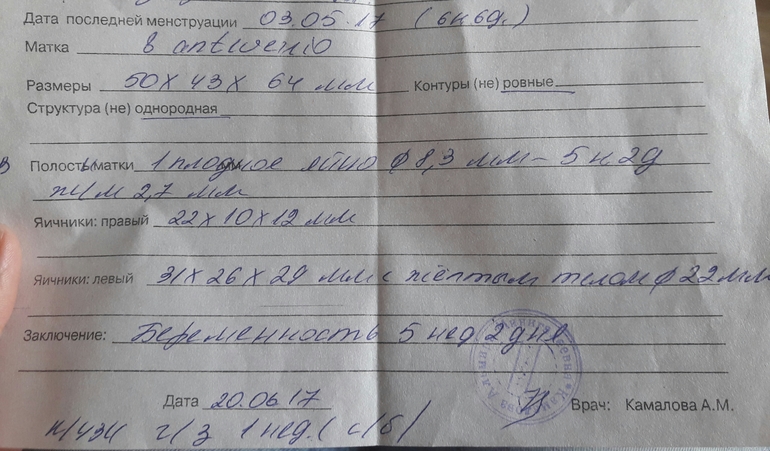 Дата последней менструации 03.05.17 (6н6д.)
Матка в anteversio
Размеры 50 х 43 х 64 мм Контуры (не) ровные
Структура (не) однородная
В Полость матки 1 плодное яйцо ф 8,3 мм – 5 н 2д
ж/м 2,7 мм
Яичники: правый 22 х 10 х 12 мм
Яичники: левый 31 х 26 х 29 мм с жёлтым телом ф 22 мм
Заключение: Беременность 5 нед 2 дня
Дата 20.06.17 Врач: Камалова А.М.
ч/з 1 нед. (с/б)